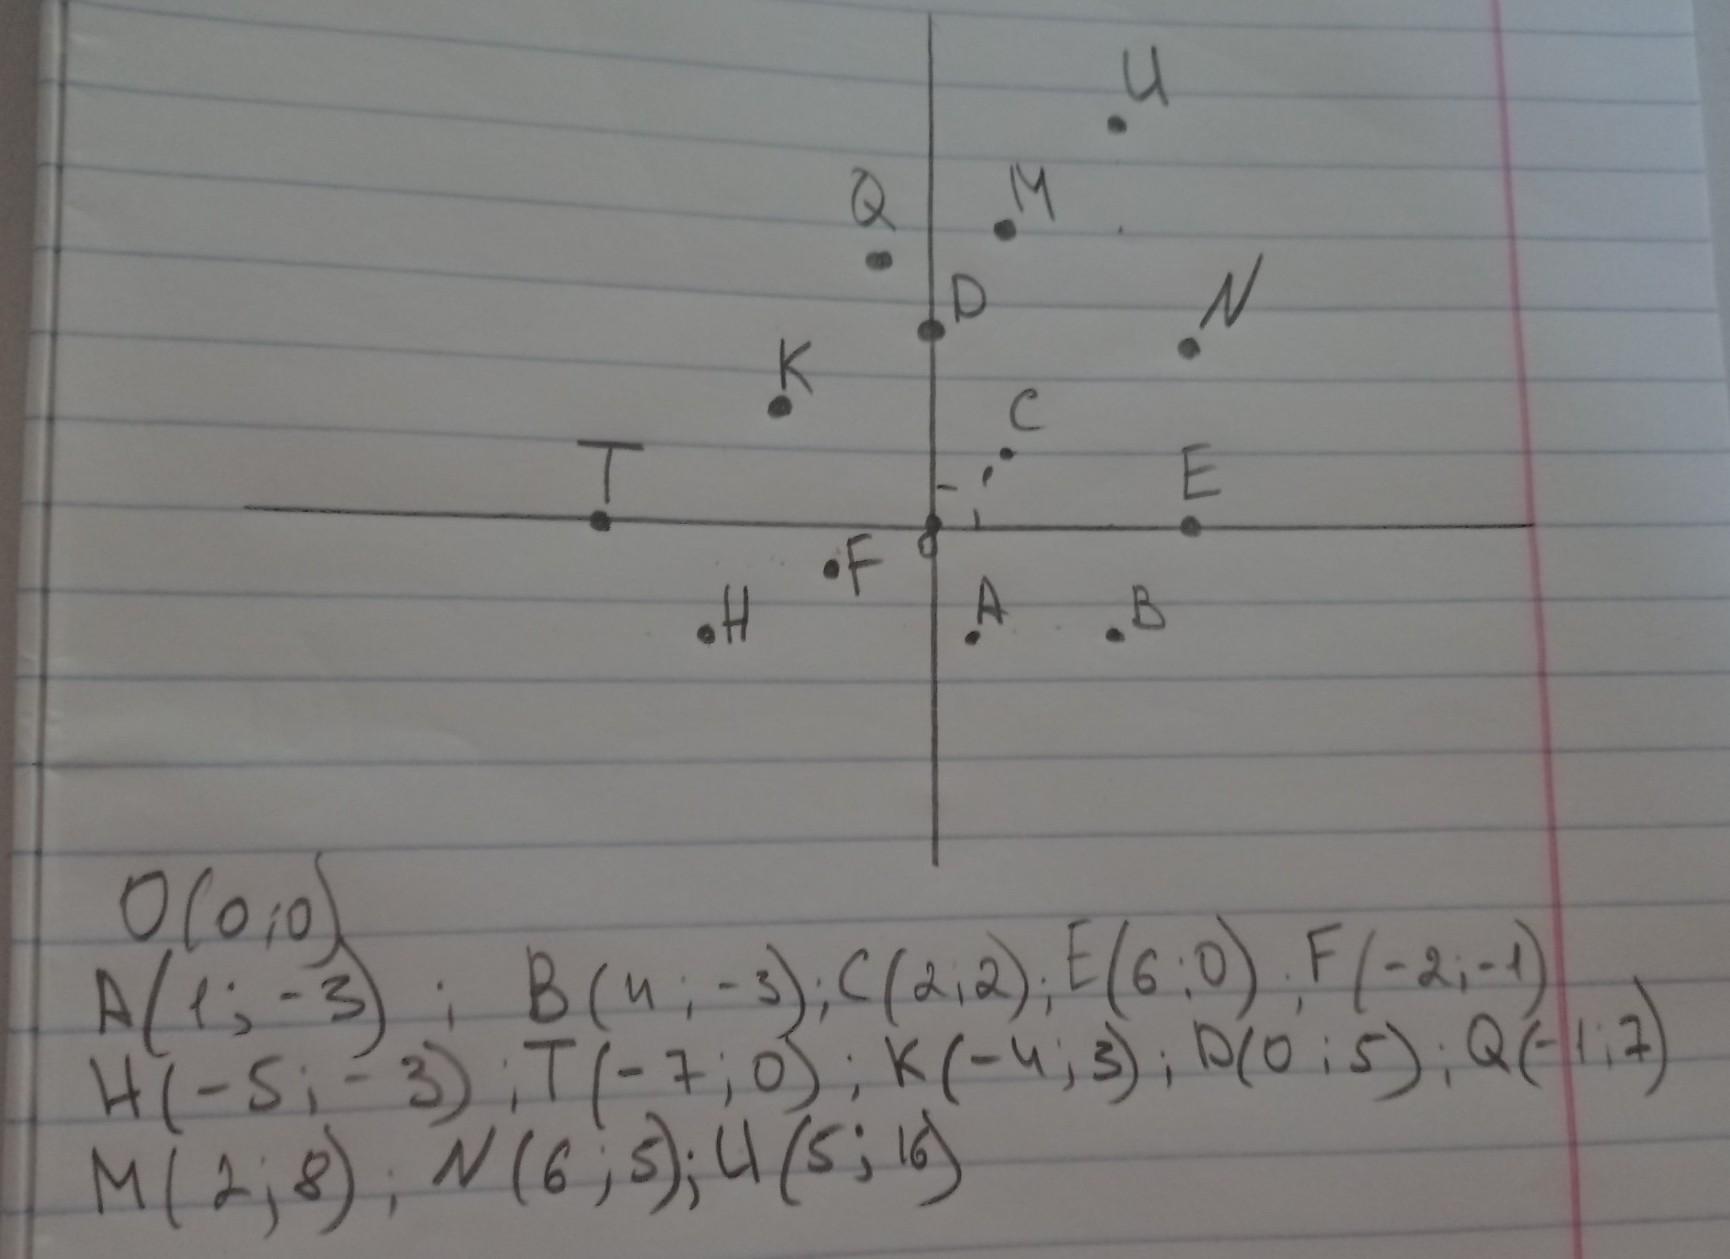 U
M
Q
N
D
K
C
T
E
F
O
H
A
B
O(0;0)
A(1;-3) ; B(4;-3); C(2;2); E(6;0); F(-2;-1)
H(-5;-3); T(-7;0); K(-4;3); D(0;5); Q(-1;7)
M(2;8); N(6;5); U(5;16)